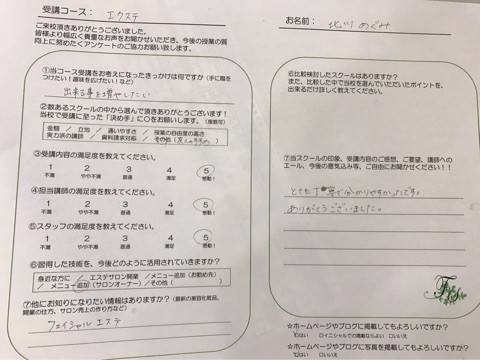 受講コース： エクステ
ご来校頂きありがとうございました。
皆様より幅広く貴重なお声をお聞かせいただき、今後の授業の質
向上に努めたくアンケートのご協力お願い致します。
①当コース受講をお考えになったきっかけは何ですか（手に職を
つけたい！趣味を広げたい！など）
出来る事を増やしたい
②数あるスクールの中から選んで頂きありがとうございます！
当校で受講に至った「決め手」に〇をお願いします。（複数可）
金額 ／ 立地 ／ 通いやすさ ／ 授業の自由度の高さ
実力派の講師 ／ 資料請求対応 ／ その他（
③受講内容の満足度を教えてください。
1 2 3 4 5
不満 やや不満 普通 満足 感動！
④担当講師の満足度を教えてください。
1 2 3 4 5
不満 やや不満 普通 満足 感動！
⑤スタッフの満足度を教えてください。
1 2 3 4 5
不満 やや不満 普通 満足 感動！
⑥習得した技術を、今後どのように活用されていきますか？
身近な方に ／ エステサロン開業 ／メニュー追加（お勤め先）
／ メニュー追加（サロンオーナー）／その他（ ）
⑦他にお知りになりたい情報はありますか？（最新の美容化粧品、
開業の仕方、サロン売上の作り方など）
フェイシャルエステ
お名前： 北川 めぐみ
⑥比較検討したスクールはありますか？
また、比較した中で当校を選んでいただいたポイントを、
出来るだけ詳しく教えてください。
⑦当スクールの印象、受講内容のご感想、ご要望、講師への
エール、今後の意気込み等、ご自由にお聞かせください！！
とても丁寧で分かりやすかったです。
ありがとうございました。
☆ホームページやブログに掲載してもよろしいですか？
はい □イニシャルでの掲載ならよい □いいえ
☆ホームページやブログに写真を掲載してもよろしいですか？
はい □いいえ